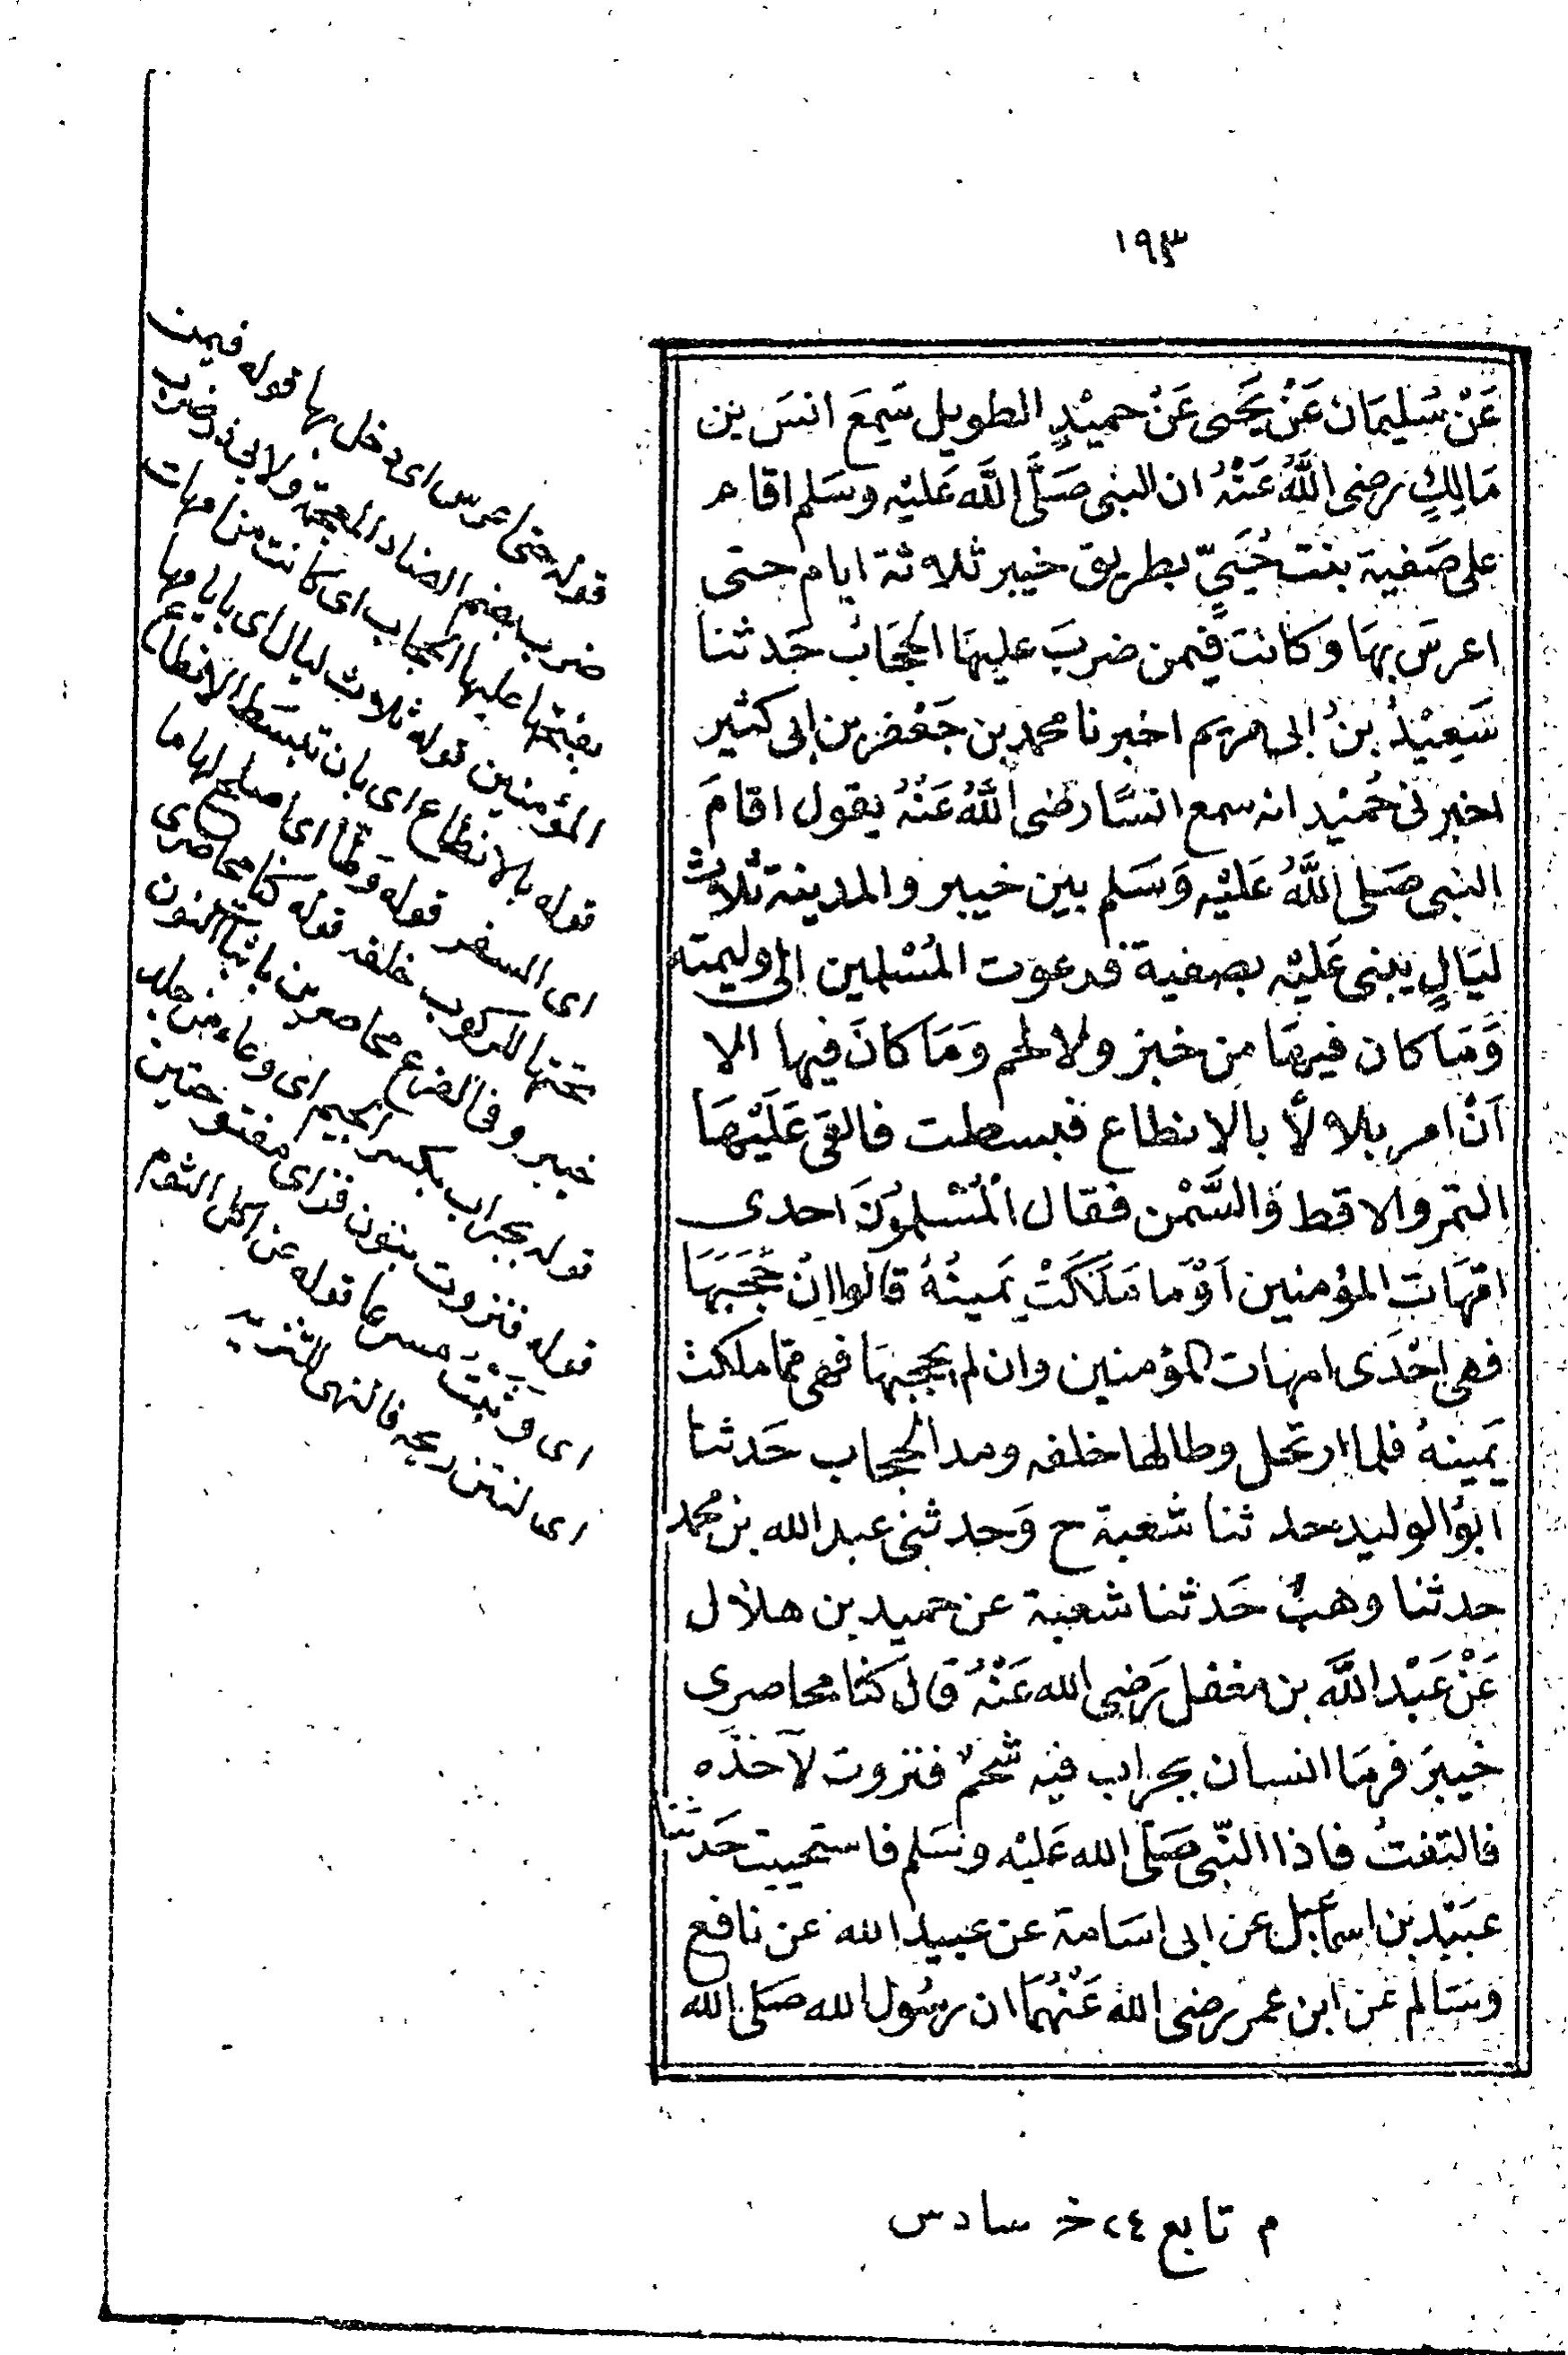 ١٩٣
عَنْ سُلِيمَان عَنْ يَحْيى عَنْ حميْدٍ الطويل سَمِعَ انسَ بن
مَالِكٍ رضى اللَّهُ عَنْهُ ان النبى صَلَّى اللَّه عَليْه وسَلم اقام
على صَفية بنت حُيَىٍّ بطريق خيبر ثلاثة ايام حتى
اعرسَ بهَا وكانت فيمن ضربَ عليهَا الحجَابُ حَدثنا
سَعِيْدُ بنُ ابى مريم اخبرنا محمد بن جَعْفر بن ابى كثير
اخبرنى حُمَيْد انه سمع انسًا رضى اللَّهُ عَنْهُ يقول اقامَ
النبى صَلى اللَّهُ عَلَيْه وَسَلم بين خيبر والمدينة ثلاث
ليَالٍ يبنى عَليْه بصفية فدعوت المُسْلمين الى وليمته
وَمَا كان فيهَا من خبز ولا لحم وَمَا كانَ فيها الا
اَنْ امر بلالاً بالانطاع فبسطت فالقى عَلَيْهَا
التمر والاقط وَالسَّمْن فقال الْمُسْلمُونَ احدى
امّهَات المؤمنين اَوْ مَا مَلَكَتْ يَمينُهُ قالوا اِنْ حَجَبَهَا
فهى اِحْدَى امهات المؤمنين وان لم يحجبهَا فهى ممّا ملكت
يَمينهُ فلما ارتحل وطا لها خلفه ومد الحجاب حَدثنا
ابوُ الوليد حدثنا شعْبة ح وَحدثنى عبد الله بن محمد
حدثنا وهبٌ حَدثنا شعبة عن حميد بن هلال
عَنْ عَبْد اللَّه بن مغفل رَضى الله عَنْهُ قالَ كنّا محاصرى
خَيبرَ فرمَا انسان بجراب فيه شحمٌ فنزوت لآخذه
فالتفتُ فاذا النّبى صَلّى الله عَليْه وسَلم فاستحييت حَدثنا
عبَيْد بن اسماعيل عن ابى اسَامة عن عبيد الله عن نافع
وسَالم عَن ابن عمر رضى الله عَنْهُمَا ان رسُول الله صَلى الله
قوله حتى اعرس اى دخل بها قوله فيمن
ضرب بضم الضاد المعجمة ولابى ذر ضرب
بفتحها عليها الحجاب اى كانت من امهات
المؤمنين قوله ثلاث ليال اى بايامها
قوله بالانطاع اى بان تبسط الانطاع
اى السفر قوله وطأ اى اصلح لها ما
تحتها للركوب خلفه قوله كنا محاصرى
خيبر وفى الفرع محاصرين باثبات النون
قوله بجراب بكسر الجيم اى وعاء من جلد
قوله فنزوت بنون فزاى مفتوحتين
اى وَثَبْتُ مسرعا قوله عن اكل الثوم
اى لنتن ريحه فالنهى للتنزيه
م تابع ٢٤ خ سادس